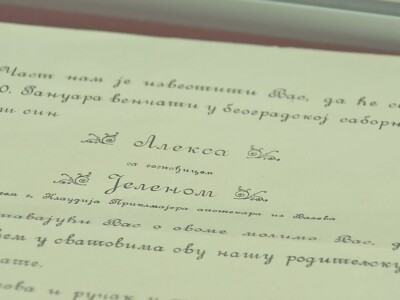 Част нам је известити Вас, да ће с
0. Јануара венчати у београдској саборн
ш син
Алекса
са госпођицом
Јеленом
Клаудија Приклмајера апотекара из Ваљева
тавајући Вас о овоме молимо Вас, д
ем у сватовима ову нашу родитељску
ате.
ова и ручак